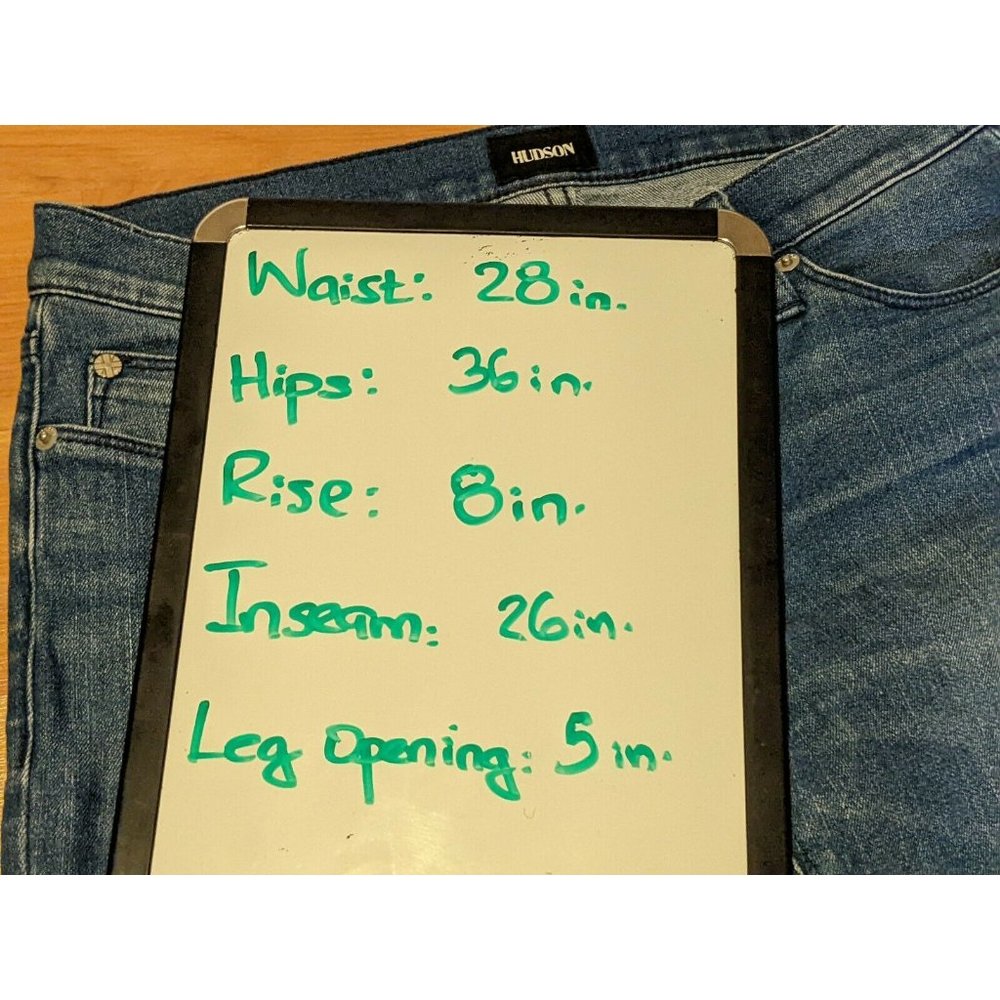 HUDSON
Waist: 28 in.
Hips: 36 in.
Rise: 8 in.
Inseam: 26 in.
Leg Opening: 5 in.